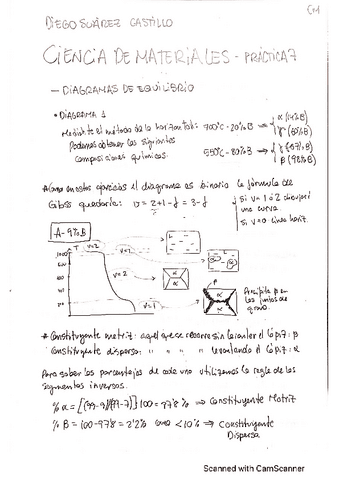 Diego Suárez Castillo
CIENCIA DE MATERIALES - PRÁCTICA 7
— DIAGRAMAS DE EQUILIBRIO
• DIAGRAMA 1
Mediante el método de la horizontal: 700°C - 20%B ⇒ { α (14%B)
γ (60%B)
Podemos obtener las siguientes
composiciones químicas. 550°C - 80%B ⇒ { γ
β (98%B)
* Como en estos ejercicios el diagrama es binario la fórmula de
Gibbs quedaría: v = 2+1-f = 3-f
si v = 1 ó 2
una curva.
si v=0 línea horiz.
A-9%B
T
v=2
v=1
L
1000
v=2
α
α
α
α
v=1
β
Precipita β en
las juntas de
grano.
* Constituyente matriz: aquel que se recorre sin levantar el lápiz: β
Constituyente disperso: " " " levantando el lápiz: α
Para saber los porcentajes de cada uno utilizamos la regla de los
segmentos inversos.
% α = [(99-9)/(99-7)] 100 = 97'8 % ⇒ Constituyente Matriz
% β = 100-97'8 = 2'2% como <10% ⇒ Constituyente
Disperso
Scanned with CamScanner